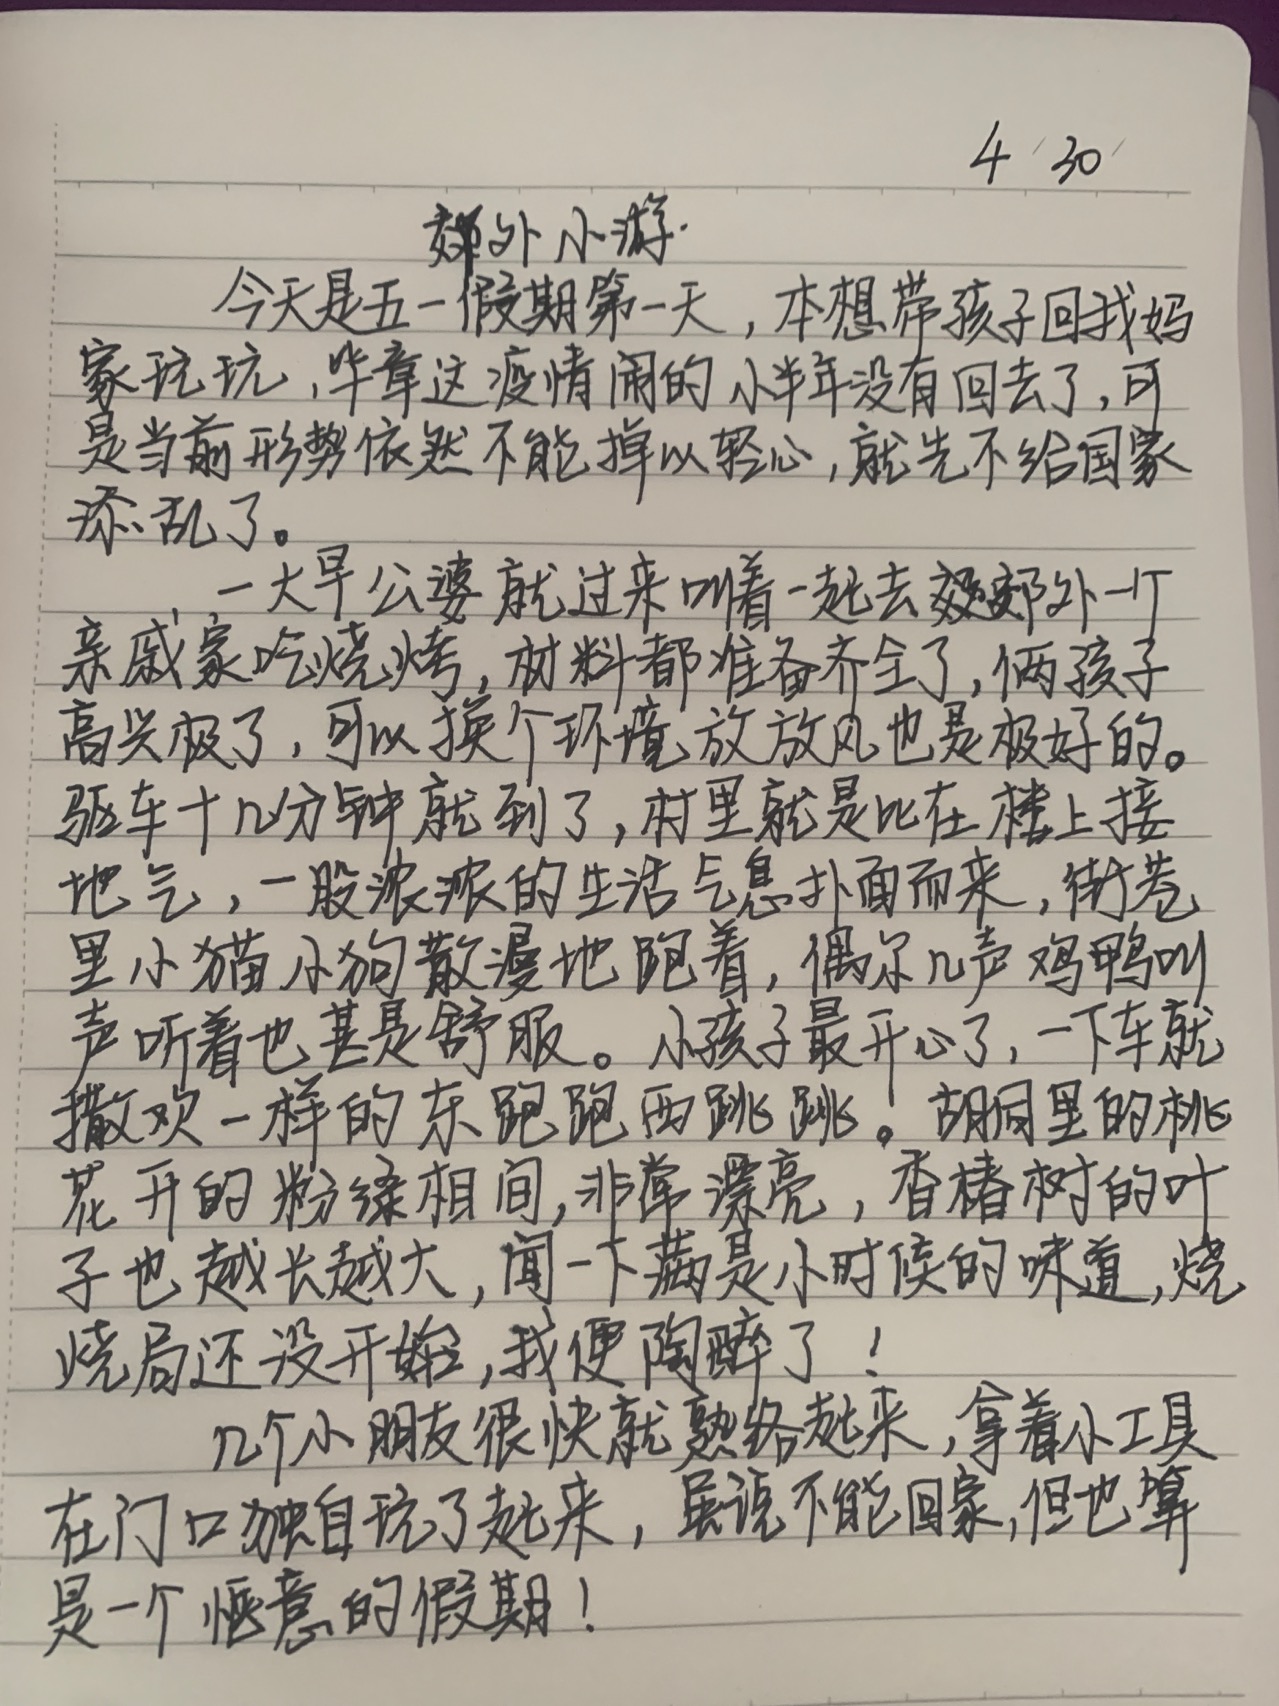 4 30
郊外小游.
今天是五一假期第一天，本想带孩子回我妈
家玩玩，毕竟这疫情闹的小半年没有回去了，可
是当前形势依然不能掉以轻心，就先不给国家
添乱了。
一大早公婆就过来叫着一起去郊外一个
亲戚家吃烧烤，材料都准备齐全了，俩孩子
高兴极了，可以换个环境放放风也是极好的。
驱车十几分钟就到了，村里就是比在楼上接
地气，一股浓浓的生活气息扑面而来，街巷
里小猫小狗散漫地跑着，偶尔几声鸡鸭叫
声听着也甚是舒服。小孩子最开心了，一下车就
撒欢一样的东跑跑西跳跳。胡同里的桃
花开的粉绿相间，非常漂亮，香椿树的叶
子也越长越大，闻一下满是小时候的味道，烧
烧局还没开始，我便陶醉了！
几个小朋友很快就熟络起来，拿着小工具
在门口独自玩了起来，虽说不能回家，但也算
是一个惬意的假期！